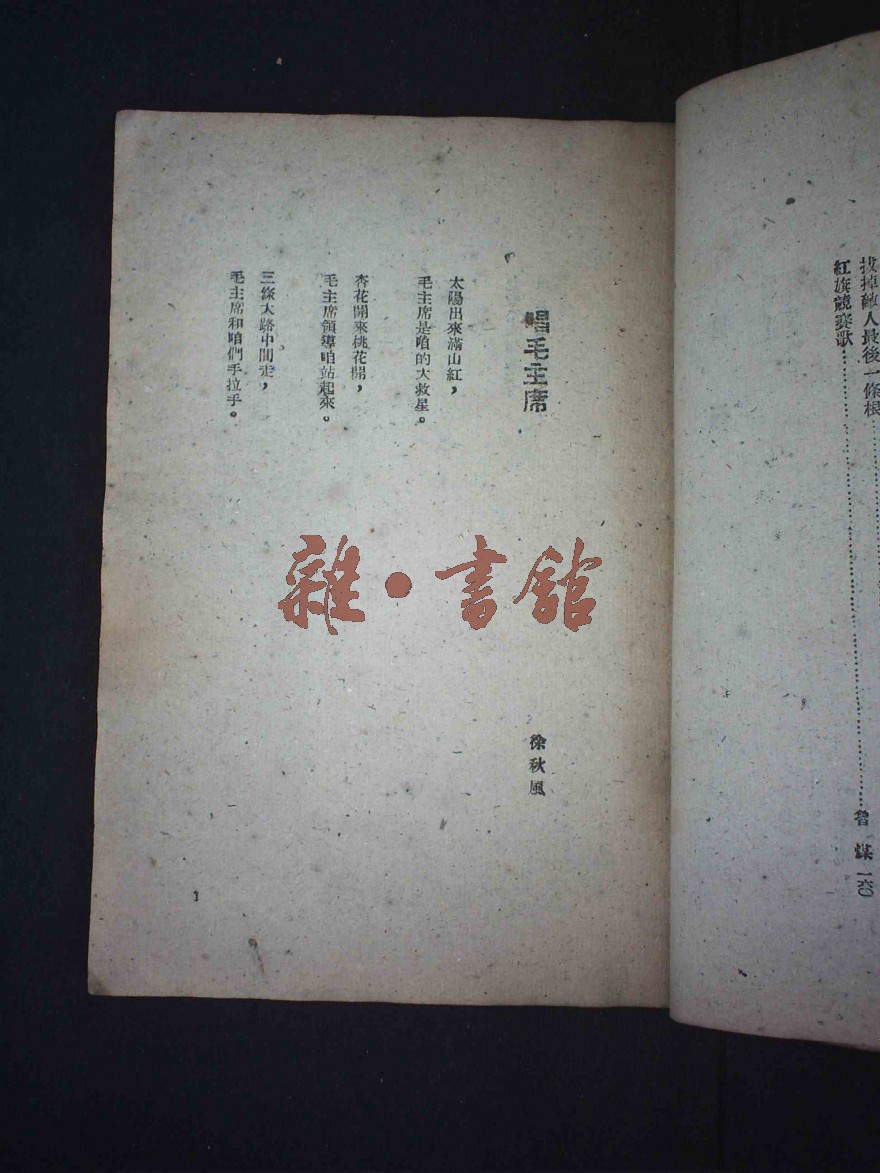 拔掉敵人最後一條根
紅旗競賽歌…曾 煤 一六〇
唱毛主席
徐秋風
太陽出來滿山紅，
毛主席是咱的大救星。
杏花開來桃花開，
毛主席領導咱站起來。
三條大路中間走，
毛主席和咱們手拉手。
1
雜·書館